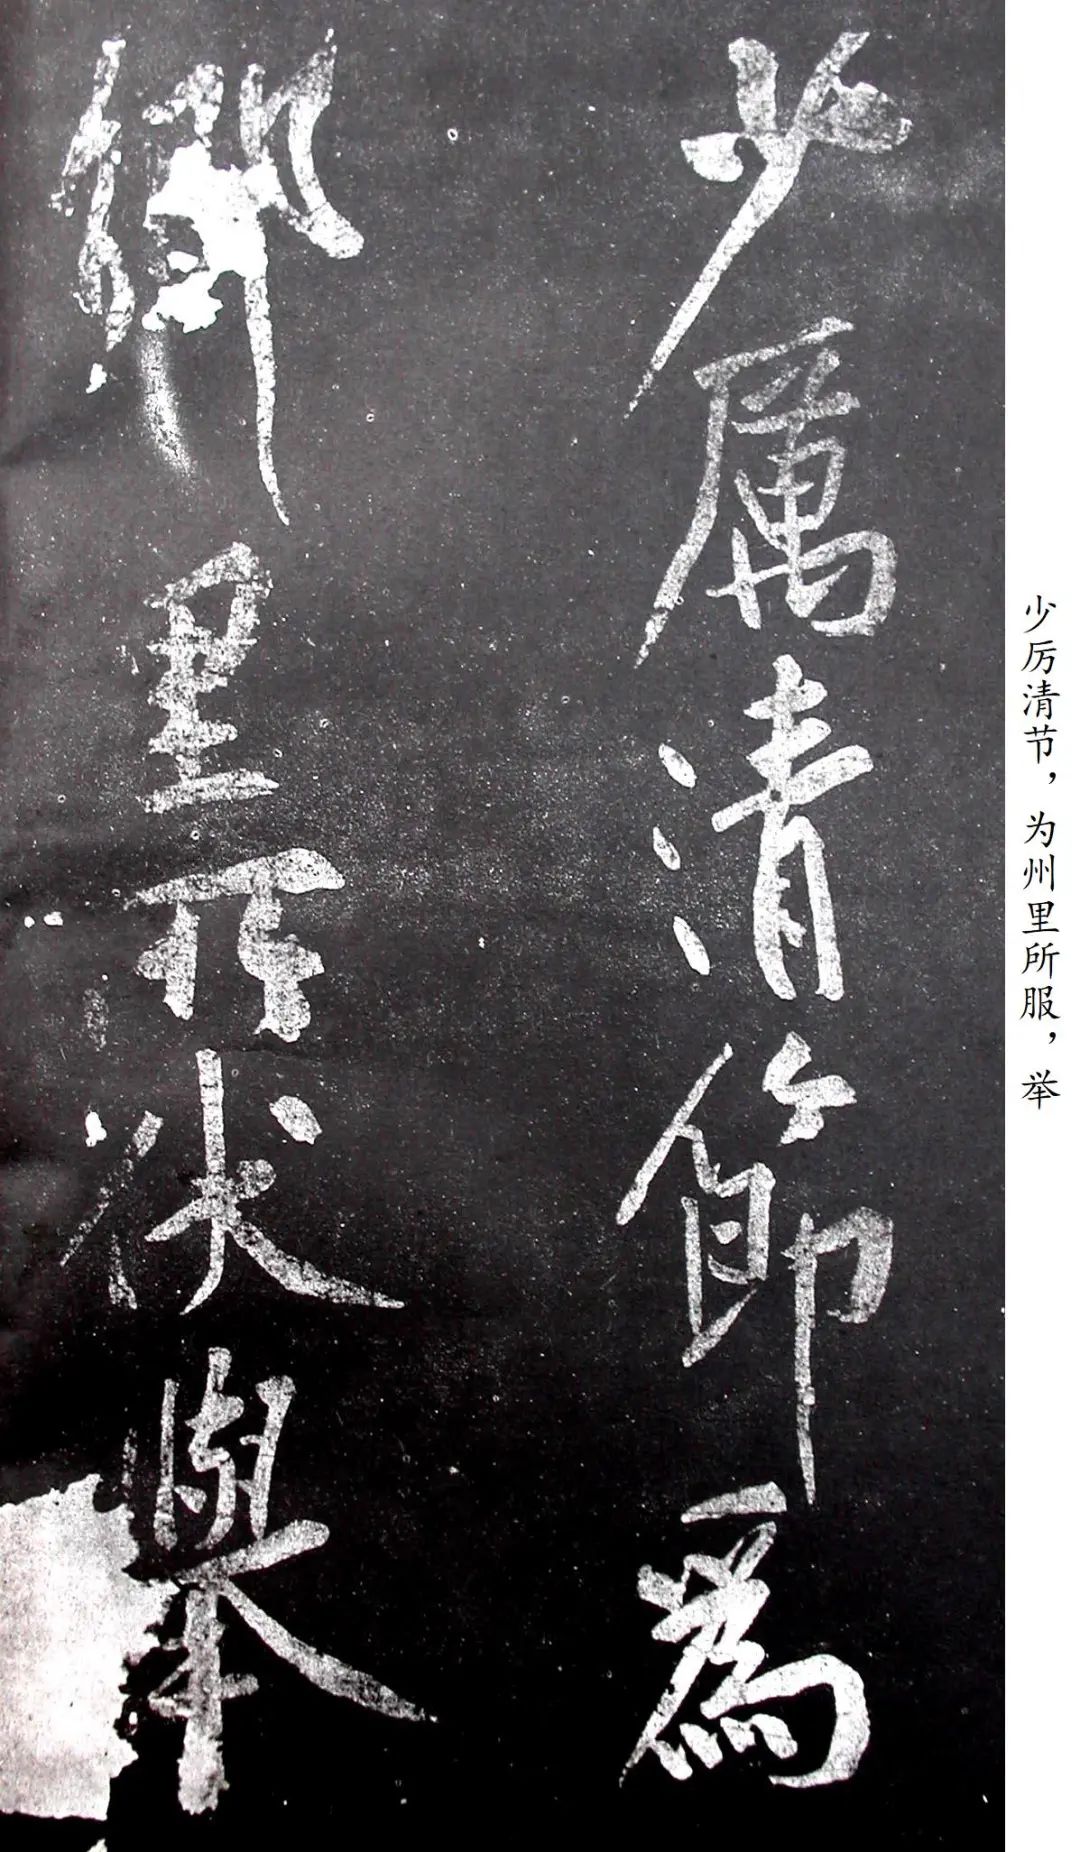 少厲清節為
鄉里所伏舉
少厉清节，为州里所服，举